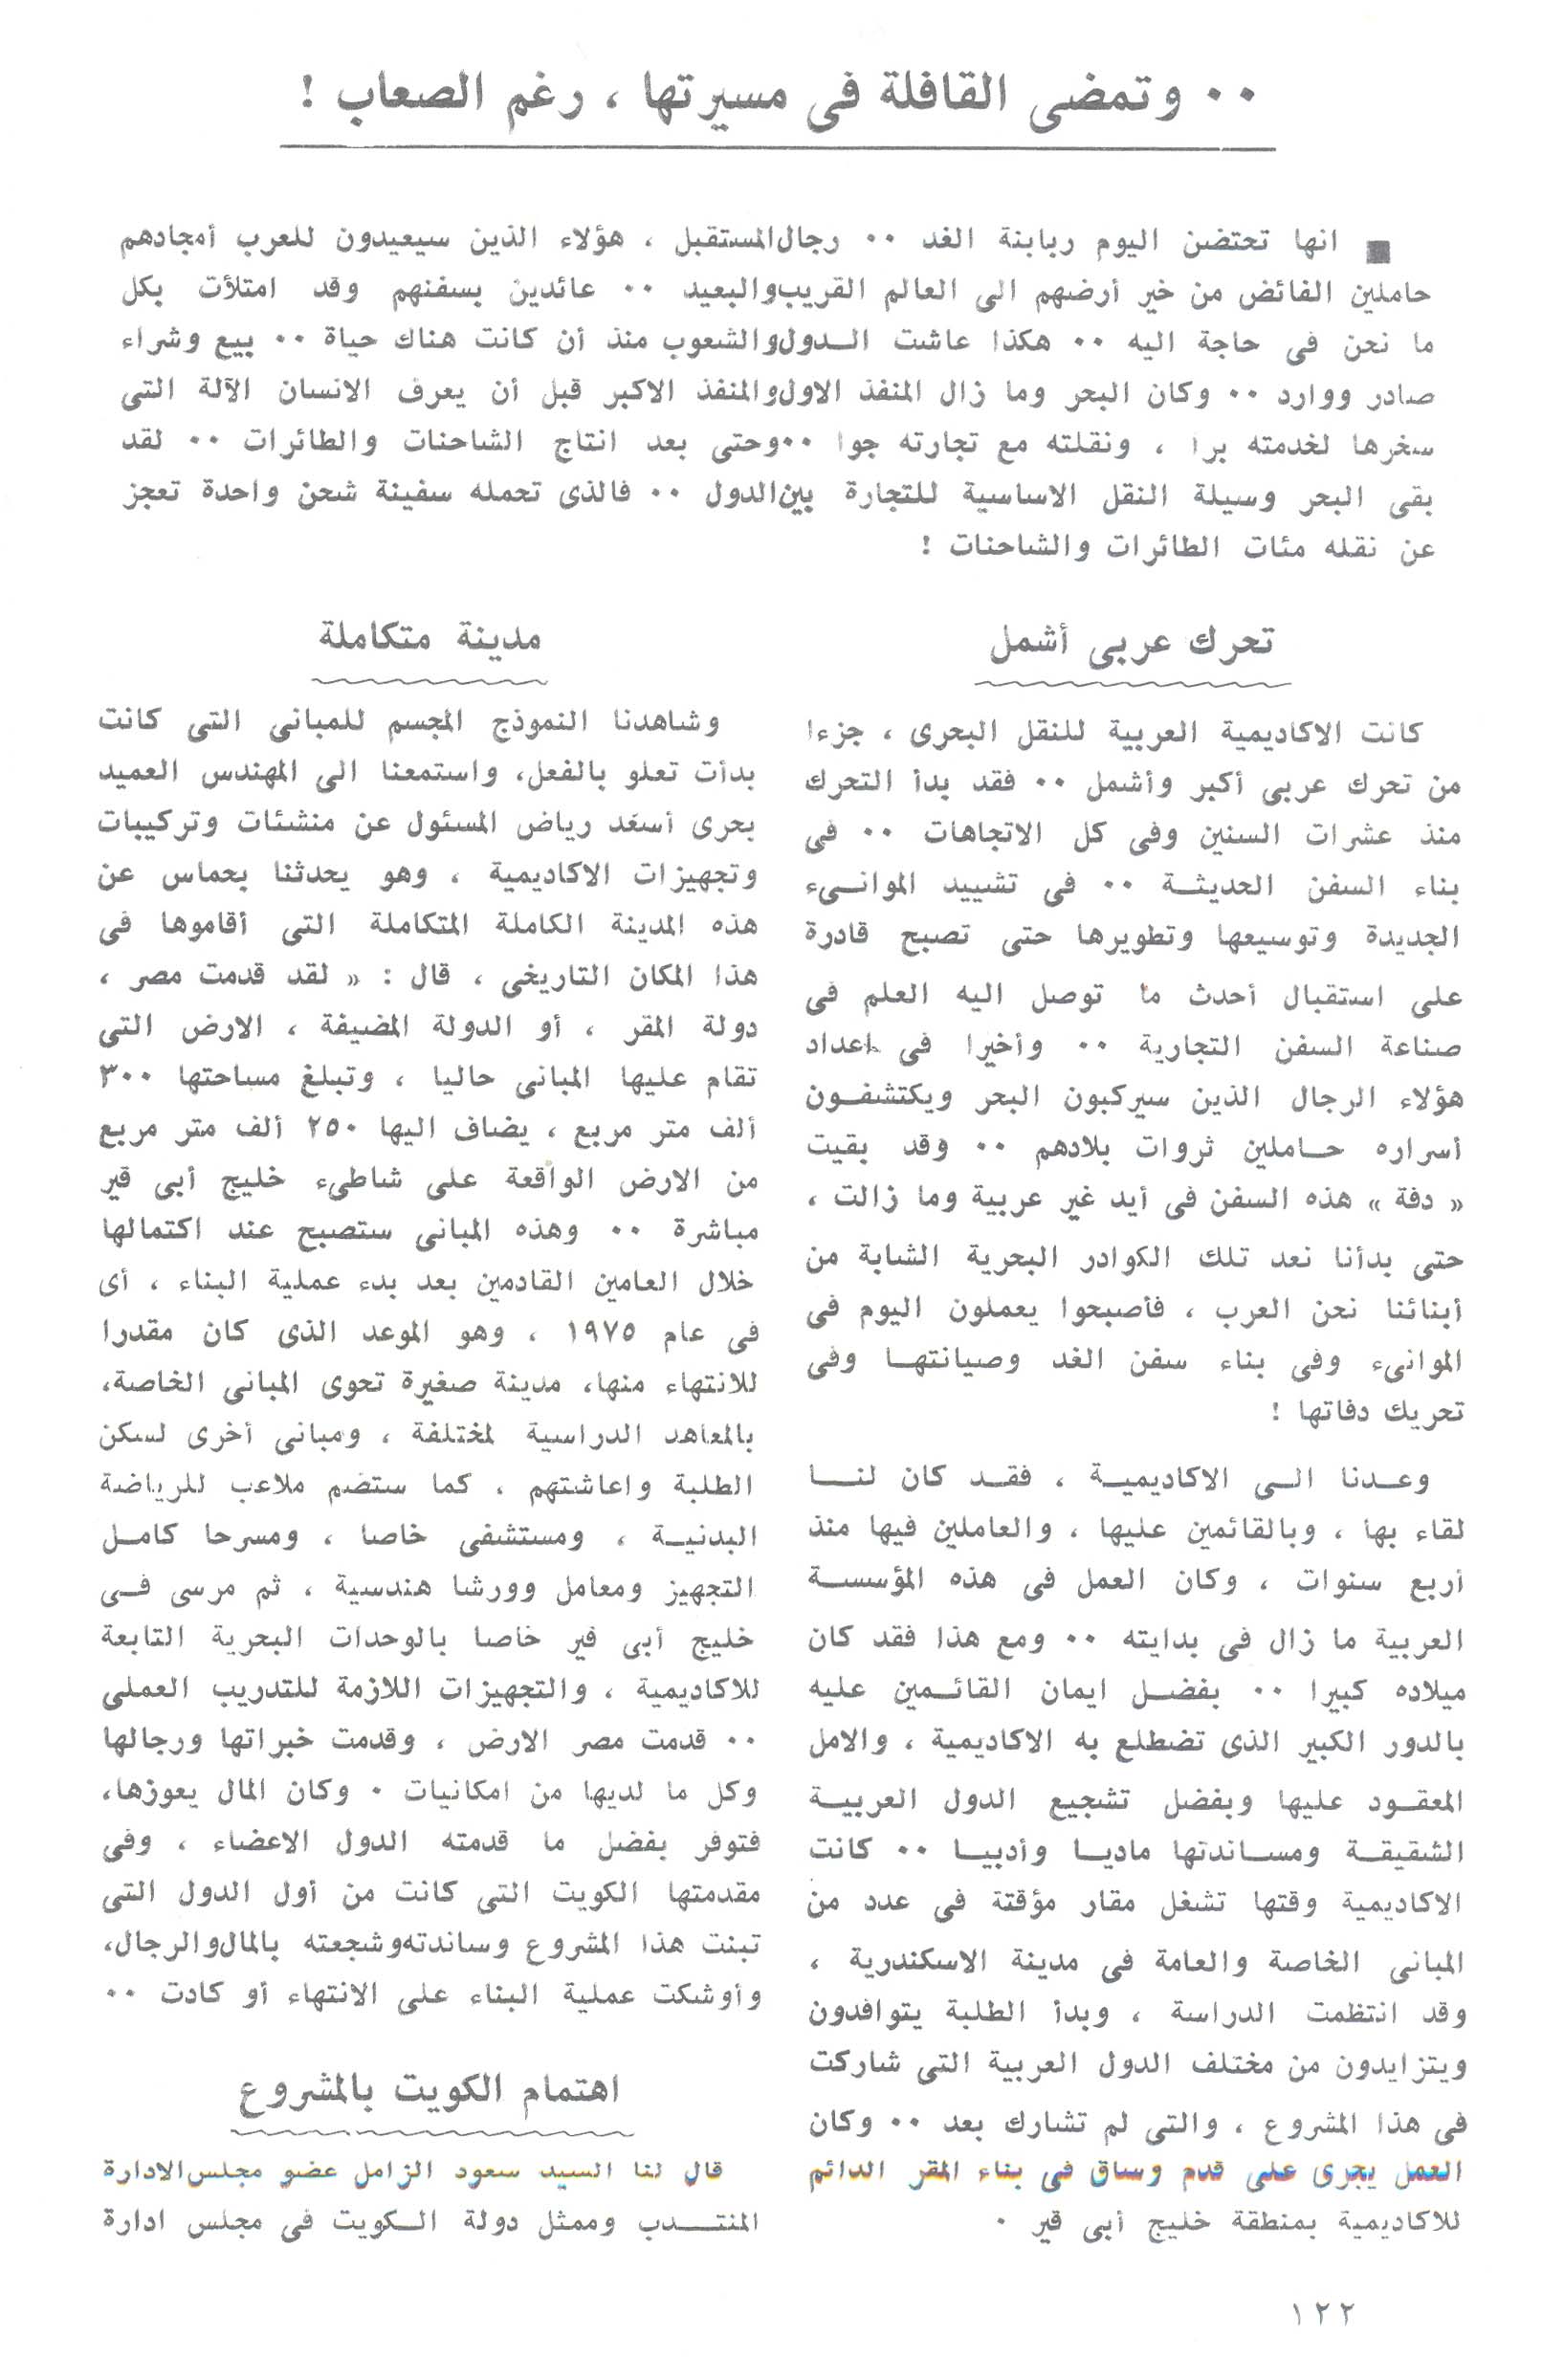 ٠٠ وتمضى القافلة فى مسيرتها ، رغم الصعاب !
■ انها تحتضن اليوم ربابنة الغد ٠٠ رجال المستقبل ، هؤلاء الذين سيعيدون للعرب أمجادهم
حاملين الفائض من خير أرضهم الى العالم القريب والبعيد ٠٠ عائدين بسفنهم وقد امتلأت بكل
ما نحن فى حاجة اليه ٠٠ هكذا عاشت الـدول والشعوب منذ أن كانت هناك حياة ٠٠ بيع وشراء
صادر ووارد ٠٠ وكان البحر وما زال المنفذ الاول والمنفذ الاكبر قبل أن يعرف الانسان الآلة التى
سخرها لخدمته برا ، ونقلته مع تجارته جوا ٠٠ وحتى بعد انتاج الشاحنات والطائرات ٠٠ لقد
بقى البحر وسيلة النقل الاساسية للتجارة بين الدول ٠٠ فالذى تحمله سفينة شحن واحدة تعجز
عن نقله مئات الطائرات والشاحنات !
تحرك عربى أشمل
كانت الاكاديمية العربية للنقل البحرى ، جزءا
من تحرك عربى أكبر وأشمل ٠٠ فقد بدأ التحرك
منذ عشرات السنين وفى كل الاتجاهات ٠٠ فى
بناء السفن الحديثــة ٠٠ فى تشييد الموانــىء
الجديدة وتوسيعها وتطويرها حتى تصبح قادرة
على استقبال أحدث ما توصل اليه العلم فى
صناعة السفن التجارية ٠٠ وأخيرا فى اعداد
هؤلاء الرجال الذين سيركبون البحر ويكتشفـون
أسراره حـاملين ثروات بلادهم ٠٠ وقد بقيت
« دفة » هذه السفن فى أيد غير عربية وما زالت ،
حتى بدأنا نعد تلك الكوادر البحرية الشابة من
أبنائنا نحن العرب ، فأصبحوا يعملون اليوم فى
الموانىء وفى بناء سفن الغد وصيانتهـا وفى
تحريك دفاتها !
وعـدنا الـى الاكاديميـة ، فقـد كان لنـا
لقاء بها ، وبالقائمين عليها ، والعاملين فيها منذ
أربع سنوات ، وكان العمل فى هذه المؤسسـة
العربية ما زال فى بدايته ٠٠ ومع هذا فقد كان
ميلاده كبيرا ٠٠ بفضـل ايمان القائـمين عليه
بالدور الكبير الذى تضطلع به الاكاديمية ، والامل
المعقـود عليها وبفضل تشجيع الدول العربيـة
الشقيقـة ومسـاندتها ماديـا وأدبيـا ٠٠ كانت
الاكاديمية وقتها تشغل مقار مؤقتة فى عدد من
المبانى الخاصة والعامة فى مدينة الاسكندرية ،
وقد انتظمت الدراسة ، وبدأ الطلبة يتوافدون
ويتزايدون من مختلف الدول العربية التى شاركت
فى هذا المشروع ، والتى لم تشارك بعد ٠٠ وكان
العمل يجرى على قدم وساق فى بناء المقر الدائم
للاكاديمية بمنطقة خليج أبى قير ٠
مدينة متكاملة
وشاهدنا النموذج المجسم للمبانى التى كانت
بدأت تعلو بالفعل، واستمعنا الى المهندس العميد
بحرى أسعد رياض المسئول عن منشئات وتركيبات
وتجهيزات الاكاديمية ، وهو يحدثنا بحماس عن
هذه المدينة الكاملة المتكاملة التى أقاموها فى
هذا المكان التاريخى ، قال : « لقد قدمت مصر ،
دولة المقر ، أو الدولة المضيفة ، الارض التى
تقام عليها المبانى حاليا ، وتبلغ مساحتها ٣٠٠
ألف متر مربع ، يضاف اليها ٢٥٠ ألف متر مربع
من الارض الواقعة على شاطىء خليج أبى قير
مباشرة ٠٠ وهذه المبانى ستصبح عند اكتمالها
خلال العامين القادمين بعد بدء عملية البناء ، أى
فى عام ١٩٧٥ ، وهو الموعد الذى كان مقدرا
للانتهاء منها، مدينة صغيرة تحوى المبانى الخاصة،
بالمعاهد الدراسية لمختلفة ، ومبانى أخرى لسكن
الطلبة واعاشتهم ، كما ستضم ملاعب للرياضة
البدنيـة ، ومستشفى خاصا ، ومسرحا كامـل
التجهيز ومعامل وورشا هندسية ، ثم مرسى فـى
خليج أبى قير خاصا بالوحدات البحرية التابعة
للاكاديمية ، والتجهيزات اللازمة للتدريب العملى
٠٠ قدمت مصر الارض ، وقدمت خبراتها ورجالها
وكل ما لديها من امكانيات ٠ وكان المال يعوزها،
فتوفر بفضل ما قدمته الدول الاعضاء ، وفى
مقدمتها الكويت التى كانت من أول الدول التى
تبنت هذا المشروع وساندته وشجعته بالمال والرجال،
وأوشكت عملية البناء على الانتهاء أو كادت ٠٠
اهتمام الكويت بالمشروع
قال لنا السيد سعود الزامل عضو مجلس الادارة
المنتـدب وممثل دولة الـكويت فى مجلس ادارة
١٢٢